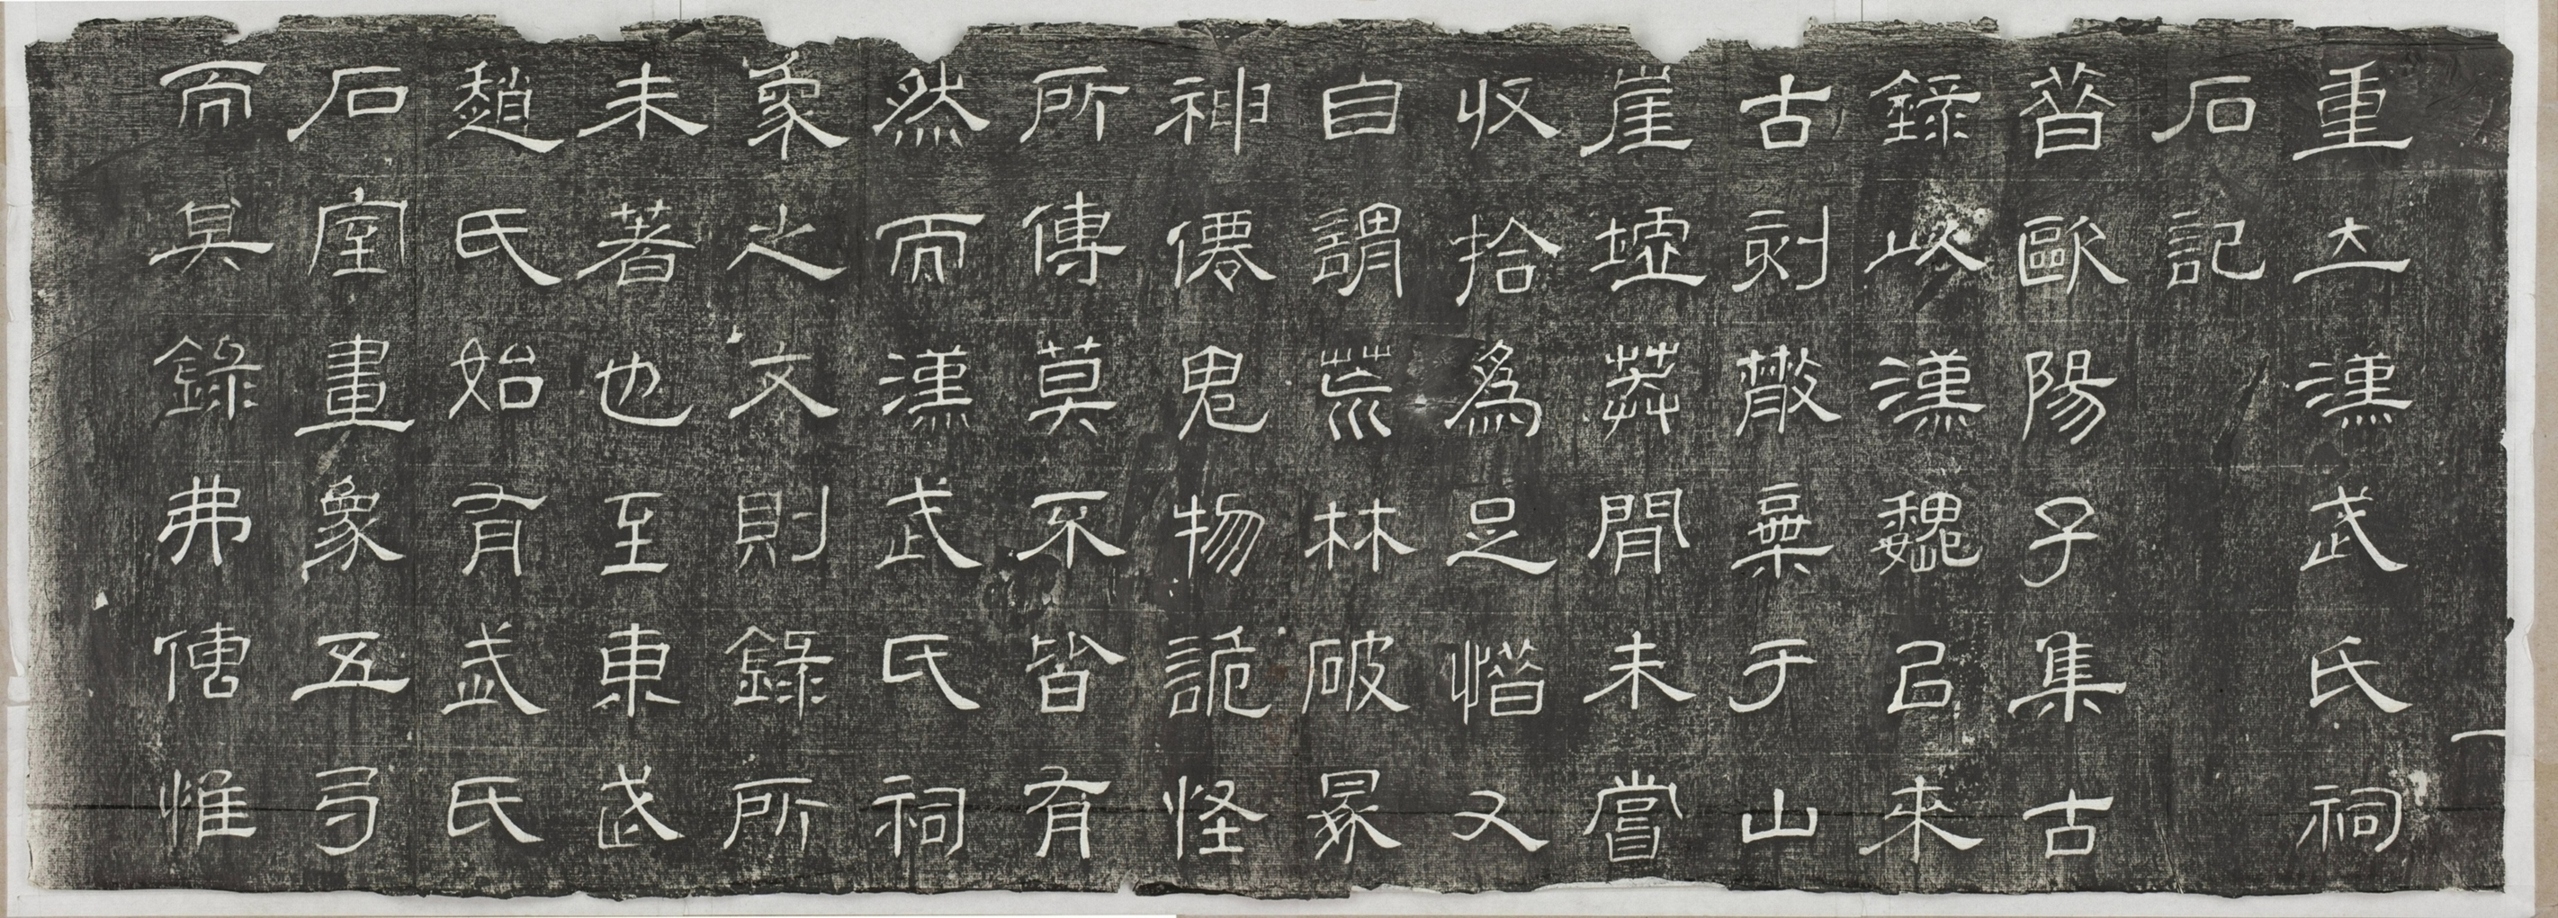 一
重立漢武氏祠
石記
昔歐陽子集古
錄以漢魏已來
古刻散棄于山
崖墟莽間未嘗
收拾為足惜又
自謂荒林破冢
神僊鬼物詭怪
所傳莫不皆有
然而漢武氏祠
象之文則錄所
未著也至東武
趙氏始有武氏
石室畫象五弓
而其錄弗傳惟